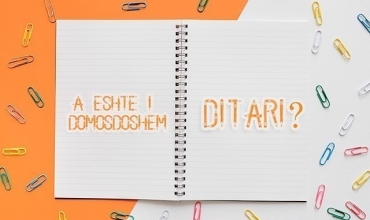 A ESHTE I
DOMOSDOSHEM
DITARI?